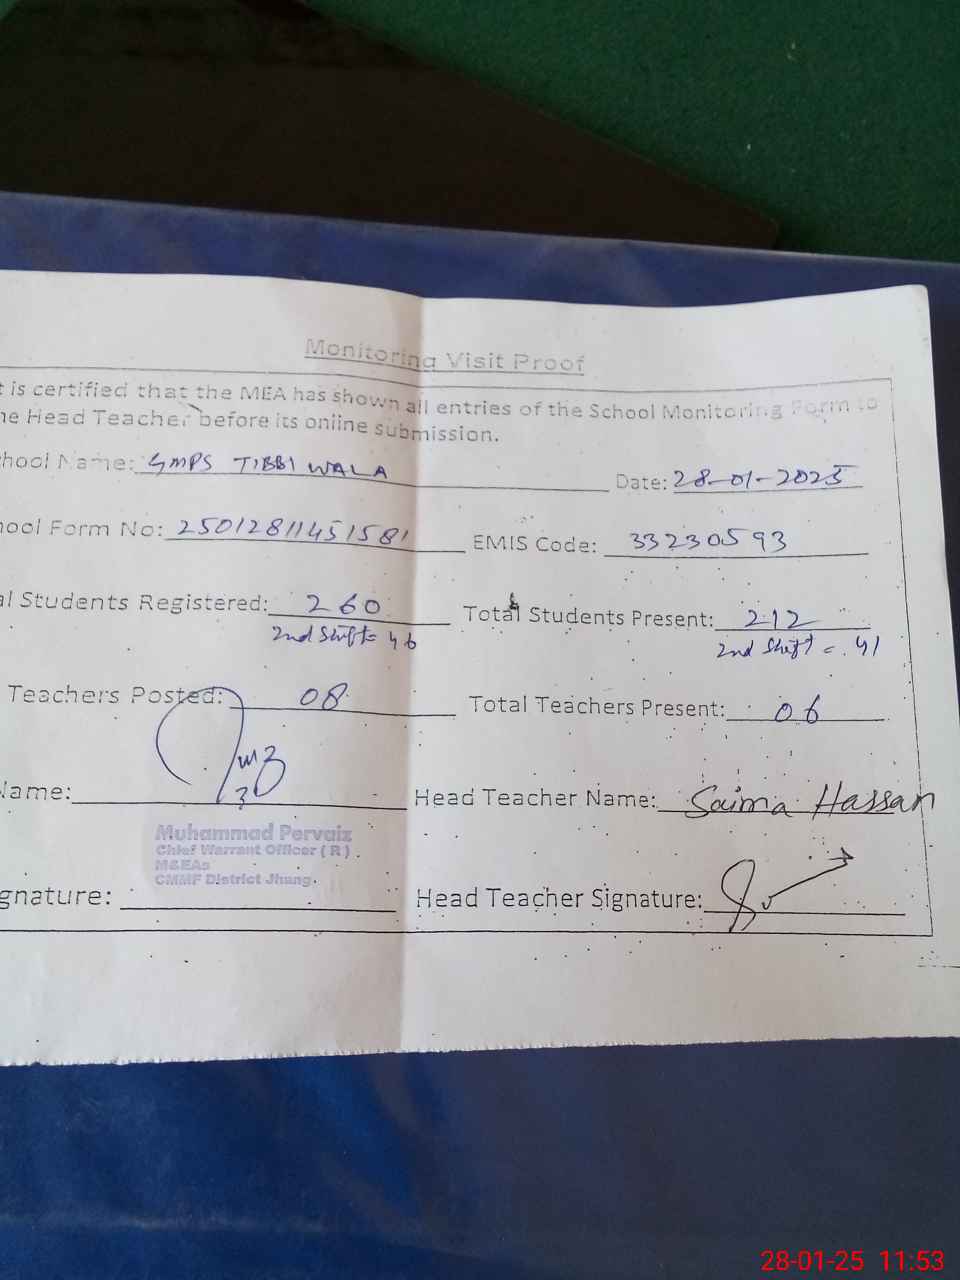 Monitoring Visit Proof
t is certified that the MEA has shown all entries of the School Monitoring Form to
he Head Teacher before its online submission.
hool Name: GMPS TIBBI WALA Date: 28-01-2025
hool Form No: 25012811451581 EMIS Code: 33230593
al Students Registered: 260 Total Students Present: 212
2nd Shift = 46 2nd Shift = 41
Teachers Posted: 08 Total Teachers Present: 06
Name: Head Teacher Name: Saima Hassan
Muhammad Pervaiz
Chief Warrant Officer ( R )
M&EAs
CMMF District Jhang.
gnature: Head Teacher Signature:
28-01-25 11:53